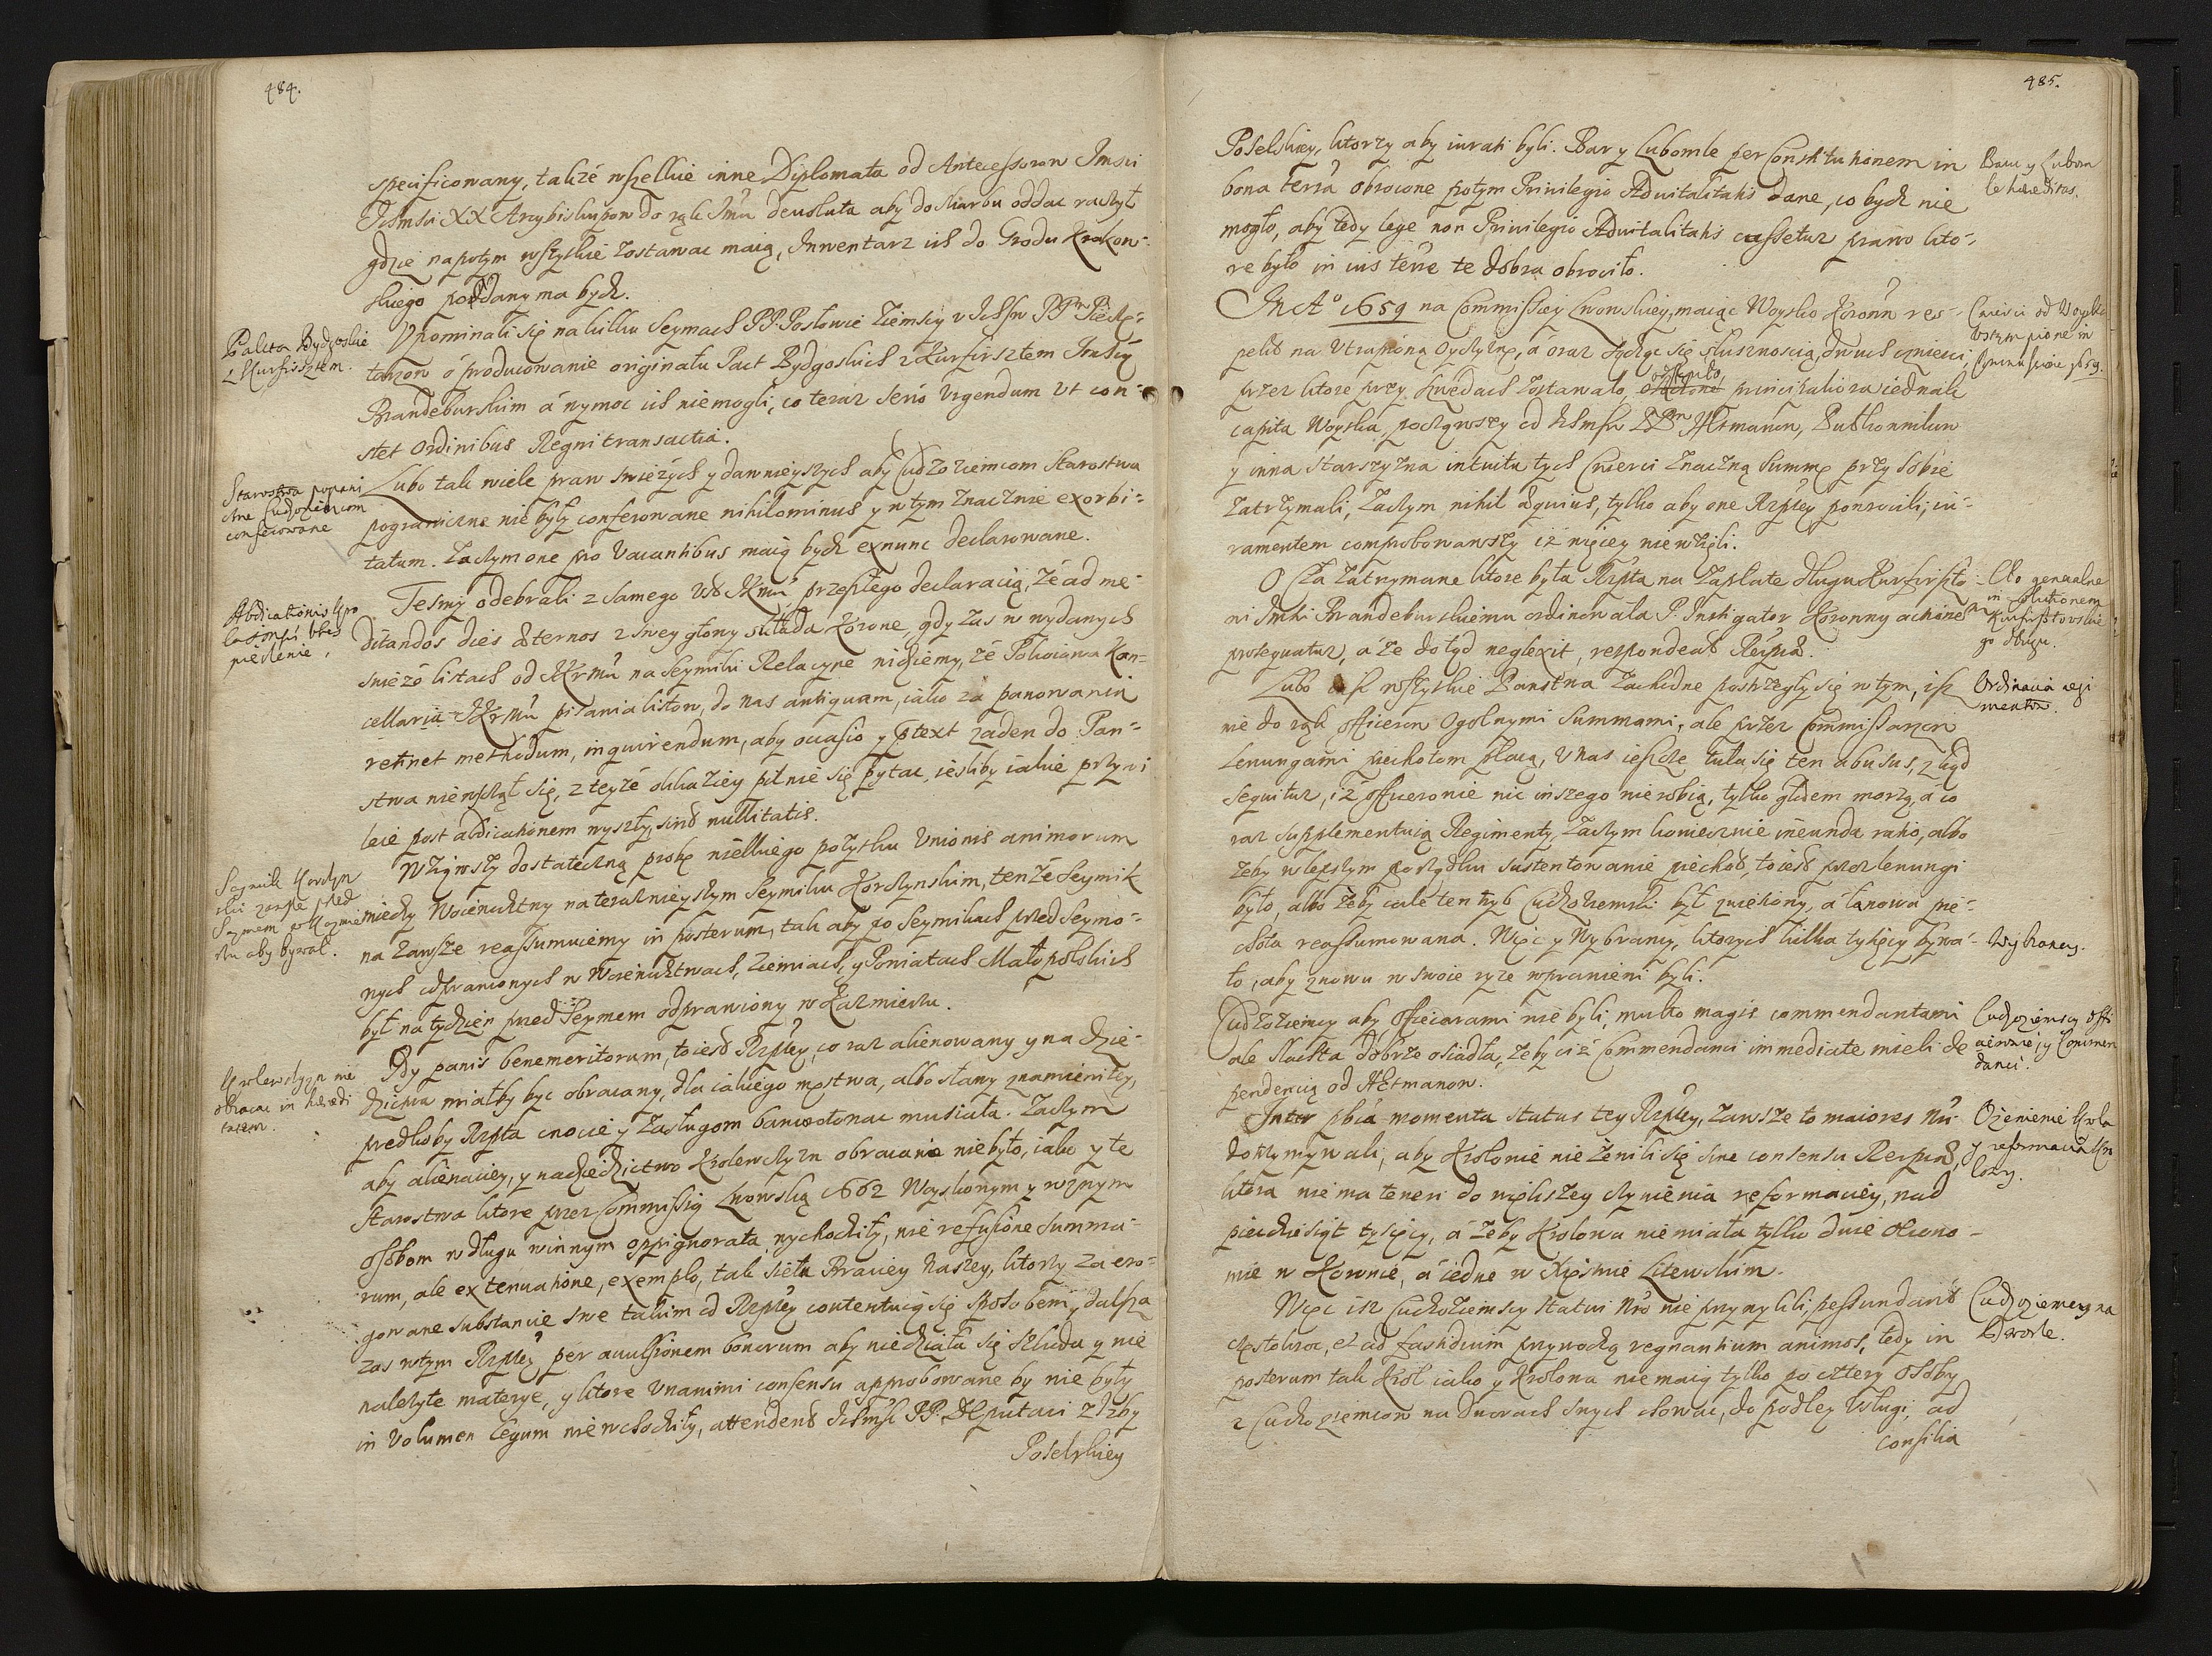 484.
specificowany, takźe wszelkie inne Diplomata od Antecessorow Jmsci
Ichmsci XX Arcybiskupow do rąk Jmu deuoluta aby do skarbu oddac raczył
gdzie napotym wszytkie zostawac maią, Inwentarz ich do Grodu Krakow-
skiego poddany ma bydz.
Pakta Bydgoskie
z Kurfirsztem.
Vpominali się na kilku Seymach PP. Posłowie Ziemscy v Ichm PPw Pieczę-
tarzow ó producowanie originału Pact Bydgoskich z Kurfirsztem Jmscią
Brandeburskim á wymoc ich niemogli, co teraz serió vrgendum vt con-
stet Ordinibus Regni transactia.
Starostwa pograni
czne Cudzoziemcom
conferowane
Lubo tak wiele praw swieźych y dawnieyszych aby Cudzoziemcom Starostwa
pograniczne nie były conferowane nihilominus y w tym znacznie exorbi-
tatum. Zaczym one pro vacantibus maią bydz exnunc declarowane.
Abdicationis Kro
la Jmsci
Tesmy odebrali z samego Vst JKMci przeszłego declaracią, źe ad me-
ditandos dies æternos z swey głowy składa Korone, gdy zas w wydanych
swieźo listach od JKrMci na Seymiki Relacyine widziemy, źe Pokoiowa Kan-
cellaria JKrMci pisania listow, do nas antiquam, iako za panowania
retinet methodum, inquirendum, aby occasio y prætext zaden do Pan-
stwa niewszczął się, z teyźe okkaziey pilnie się pytac, iesliby iakie przywi
leie post abdicationem wyszły, sint nullitatis.
Seymik Korczyn
ski zawsze przed
Seymem w Kazmie
rzu aby bywał.
Wziąwszy dostateczną probę wielkiego poźytku Vnionis animorum
miedzy Woiewodztwy na terazniejszym Seymiku Korczynskim, tenźe Seymik
na zawsze reassumuiemy in posterum, tak aby po Seymikach przed Seymo-
wych odprawionych w Woiewodztwach, Ziemiach, y Powiatach Małopolskich
był na tydzien przed Seymem odprawiony w Kazmierzu.
Krolewszczyzn nie
obracac in hæredi
tatem.
Gdy panis benemeritorum, toiest Rzptey, co raz alienowany y na dzie-
dzictwa miałby byc obracany, dla iakiego męstwa, albo sławy znamienitey,
prędkoby Rzpta cnocie y zasługom bankrotowac musiała. Zaczym
aby alienaciey, y na dziedzictwo Krolewszczyzn obracania niebyło, iako y te
Starostwa ktore przez Commissią Lwowską 1662 Woyskowym y roznym
osobom w długu winnym oppignorata wychodziły, nie refusione summa-
rum, ale extenuatione, exemplo, tak wiela Braciey naszey, ktorzy za ero-
gowane substancie swe takim od Rzptey contentuią się sposobem, y dalsza
zas w tym Rzptey per auulsionem bonorum aby niedziała się szkoda y nie
naleźyte materye, y ktore vnanimi consensu approbowane by nie były
in Volumen Legum niewchodziły, attendent Ichmsc PP. Deputaci z Izby
Poselskiey
485.
Poselskiey, ktorzy aby iurati byli. Bar y Lubomle per Constitutionem in
bona terræ obrocone potym Privilegio Aduitalitatis dane, co bydz nie
mogło, aby tedy lege non Privilegio Aduitalitatis cassetur prawo kto-
re było in ius terræ te dobra obrociło.
Baru y Lubom
la hæreditas.
In Aº 1659 na Commissiey Lwowskiey, maiąc Woysko Koronn res-
pekt na vtrapioną oyczyznę, á oraz rządząc się słusznoscią, dwuch cwierci,
przez ktore przy Szwedach zostawało, odstąpiło, principaliora iednak
capita Woyska, począwszy od Ichmsc PPw Hetmanow, Pułkownikow
y inna starszyzna intuitu tych Cwierci znaczną Summę przy sobie
zatrzymali, zaczym nihil æquius, tylko aby one Rzptey powrocili, iu-
ramentem comprobowawszy iź więcey niewzięli.
Cwierci od Woyska
vstąpione in
Commissione 1659.
O Cła zatrzymane ktore była Rzpta na zapłate długu Kurfirszto-
wi Jmsci Brandeburskiemu ordinowała P. Instigator Koronny actiones
prosequatur, á źe dotąd neglexit, respondeat Reipub.
Cło generalne
in solutionem
Kurfirsztowskie
go długu.
Lubo wszytkie Panstwa zachodne postrzegły się w tym, isz
nie do rąk officerow Ogolnymi Summami, ale przez Commissarzow
Lenungami piechotom płacą, v nas ieszcze tuła się ten abusus, z kąd
sequitur, iź officerowie nic inszego nie robią, tylko głodem morzą, á co
raz supplementuią Regimenty, zaczym koniecznie ineunda ratio, albo
zeby w lepszym porządku sustentowanie piechot, to iest przez lenungi
było, albo źeby całe ten tryb Cudzoziemski był zniesiony, á łanowa pie-
chota reassumowana. Więc y Wybrancy, ktorych kilka tysięcy bywa-
ło, aby znowu w swoie ryze wprawieni byli.
Ordinacia regi
mentow.
Wybrancy.
Cudzoziemcy aby Officierami nie byli, multo magis commendantami
ale szlachta dobrze osiadła, źeby ciź Commendanci immediate mieli de
pendencią od Hetmanow.
Cudzoziemcy offi
cierowie, y Commen
danci.
Inter momenta status tey Rzptey, zawsze to maiores nri
dotrzymywali, aby Krolowie nie źenili się sine consensu Reipub,
ktora nie ma teneri do większey czynienia reformaciey, nad
piedziesiąt tysięcy, á źeby Krolowa nie miała tylko dwie Okono-
mie w Koronie, á iedne w Xięstwie Litewskim.
Ozienienie Krola
y reformacia Kro
lowey.
Więc isz Cudzoziemscy statui nro nie przywykli, pessundant
częstokroc, et ad fastidium przywodzą regnantium animos, tedy in
posterum tak Krol iako y Krolowa nie maią tylko po cztery osoby
z Cudzoziemcow na Dworach swych chowac, do podłey vsługi, ad
consilia
Cudzoziemcy na
Dworze.